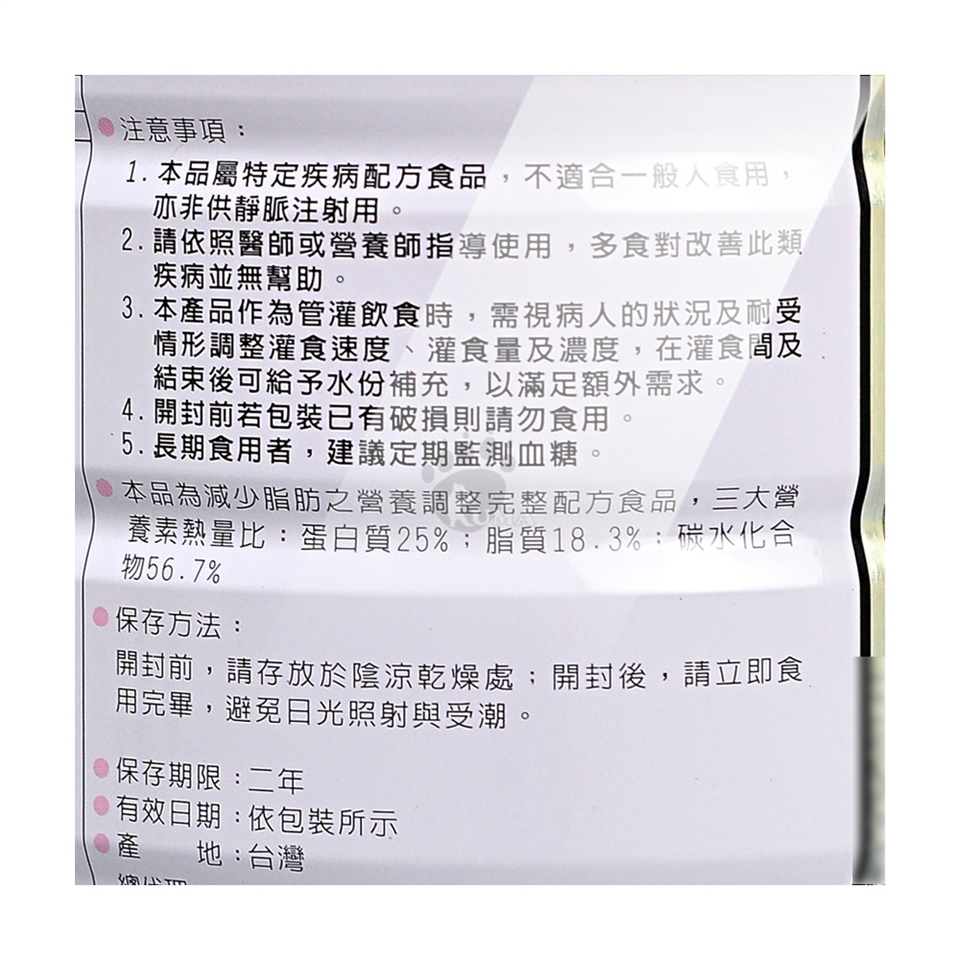 注意事項：
1. 本品屬特定疾病配方食品，不適合一般人食用，
亦非供靜脈注射用。
2. 請依照醫師或營養師指導使用，多食對改善此類
疾病並無幫助。
3. 本產品作為管灌飲食時，需視病人的狀況及耐受
情形調整灌食速度、灌食量及濃度，在灌食間及
結束後可給予水份補充，以滿足額外需求。
4. 開封前若包裝已有破損則請勿食用。
5. 長期食用者，建議定期監測血糖。
本品為減少脂肪之營養調整完整配方食品，三大營
養素熱量比：蛋白質25%；脂質18.3%；碳水化合
物56.7%
保存方法：
開封前，請存放於陰涼乾燥處；開封後，請立即食
用完畢，避免日光照射與受潮。
保存期限：二年
有效日期：依包裝所示
產　　地：台灣